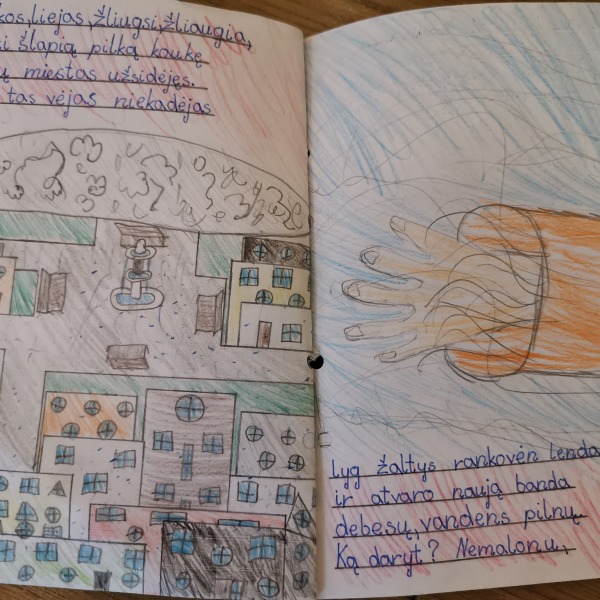 kos, liejas, žliugsi, žliaugia,
si šlapią pilką kaukę
ų miestas užsidėjęs.
tas vėjas niekadėjas
Lyg žaltys rankovėn lenda
ir atvaro naują bandą
debesų, vandens pilnų.
Ką daryt? Nemalonu,